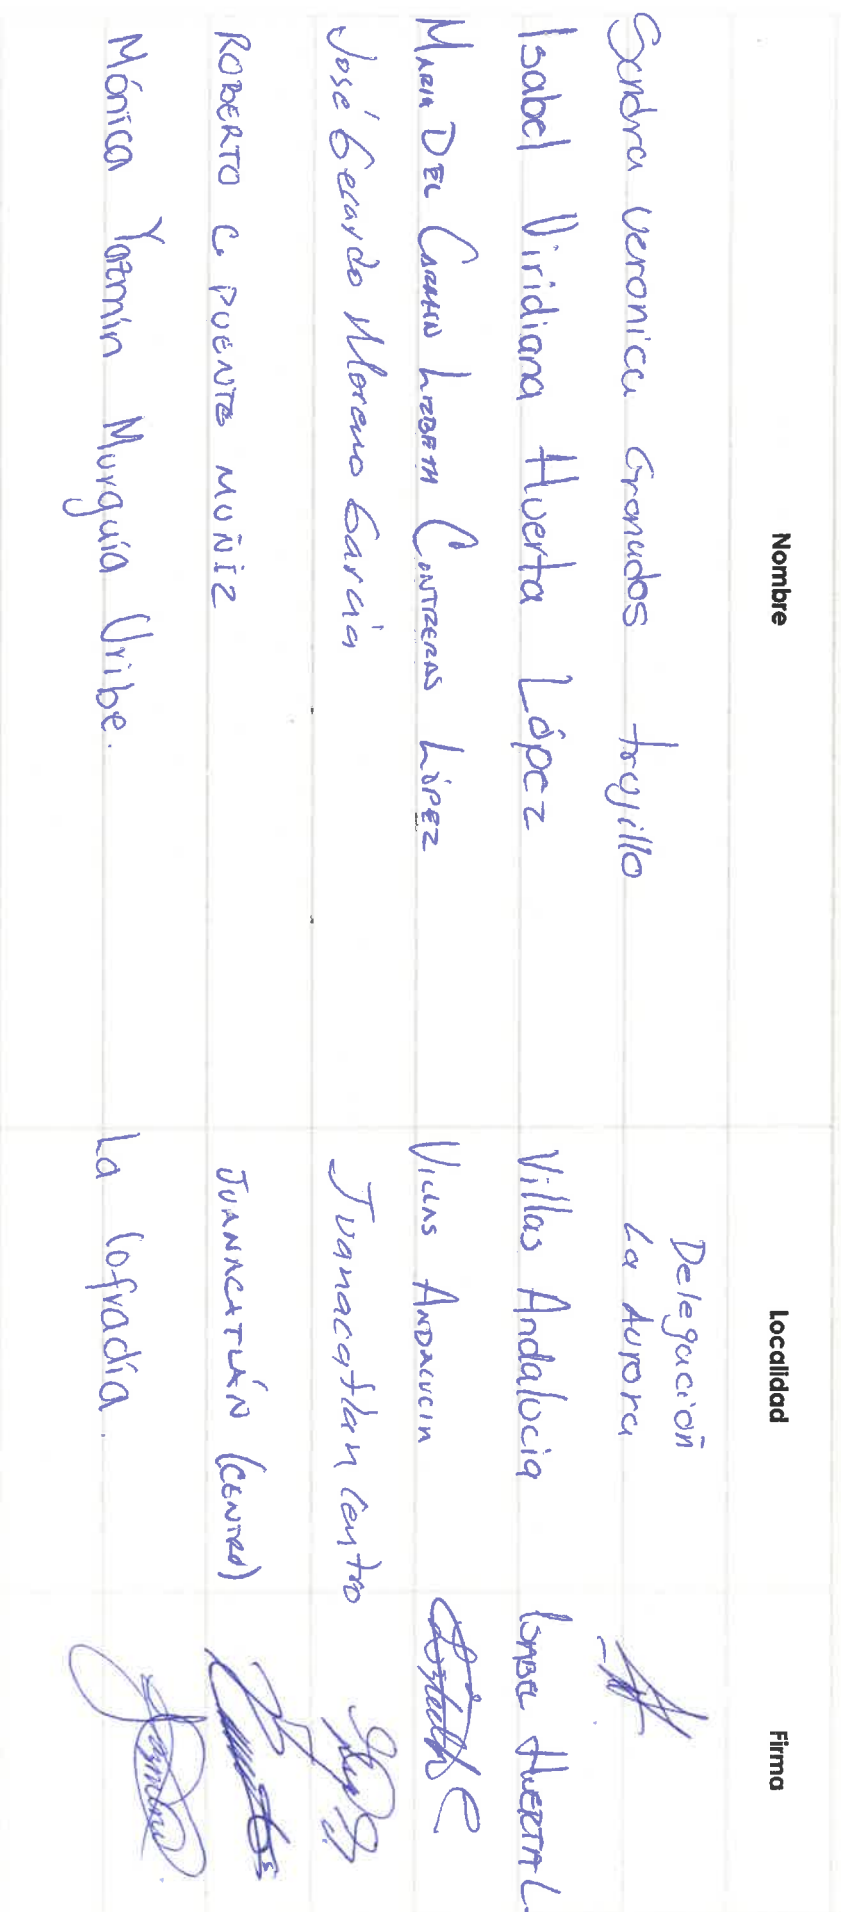 Nombre Localidad Firma
Sandra Veronica Granados trujillo Delegación La Aurora
Isabel Viridiana Huerta López Villas Andalucia ISABEL HUERTA L.
MARIA DEL CARMEN LIZBETH CONTRERAS LÓPEZ VILLAS ANDALUCIA
José Gerardo Moreno García Juanacatlan Centro
ROBERTO C. PUENTE MUÑIZ JUANACATLÁN (CENTRO)
Mónica Yazmín Murguía Uribe. La Cofradía.